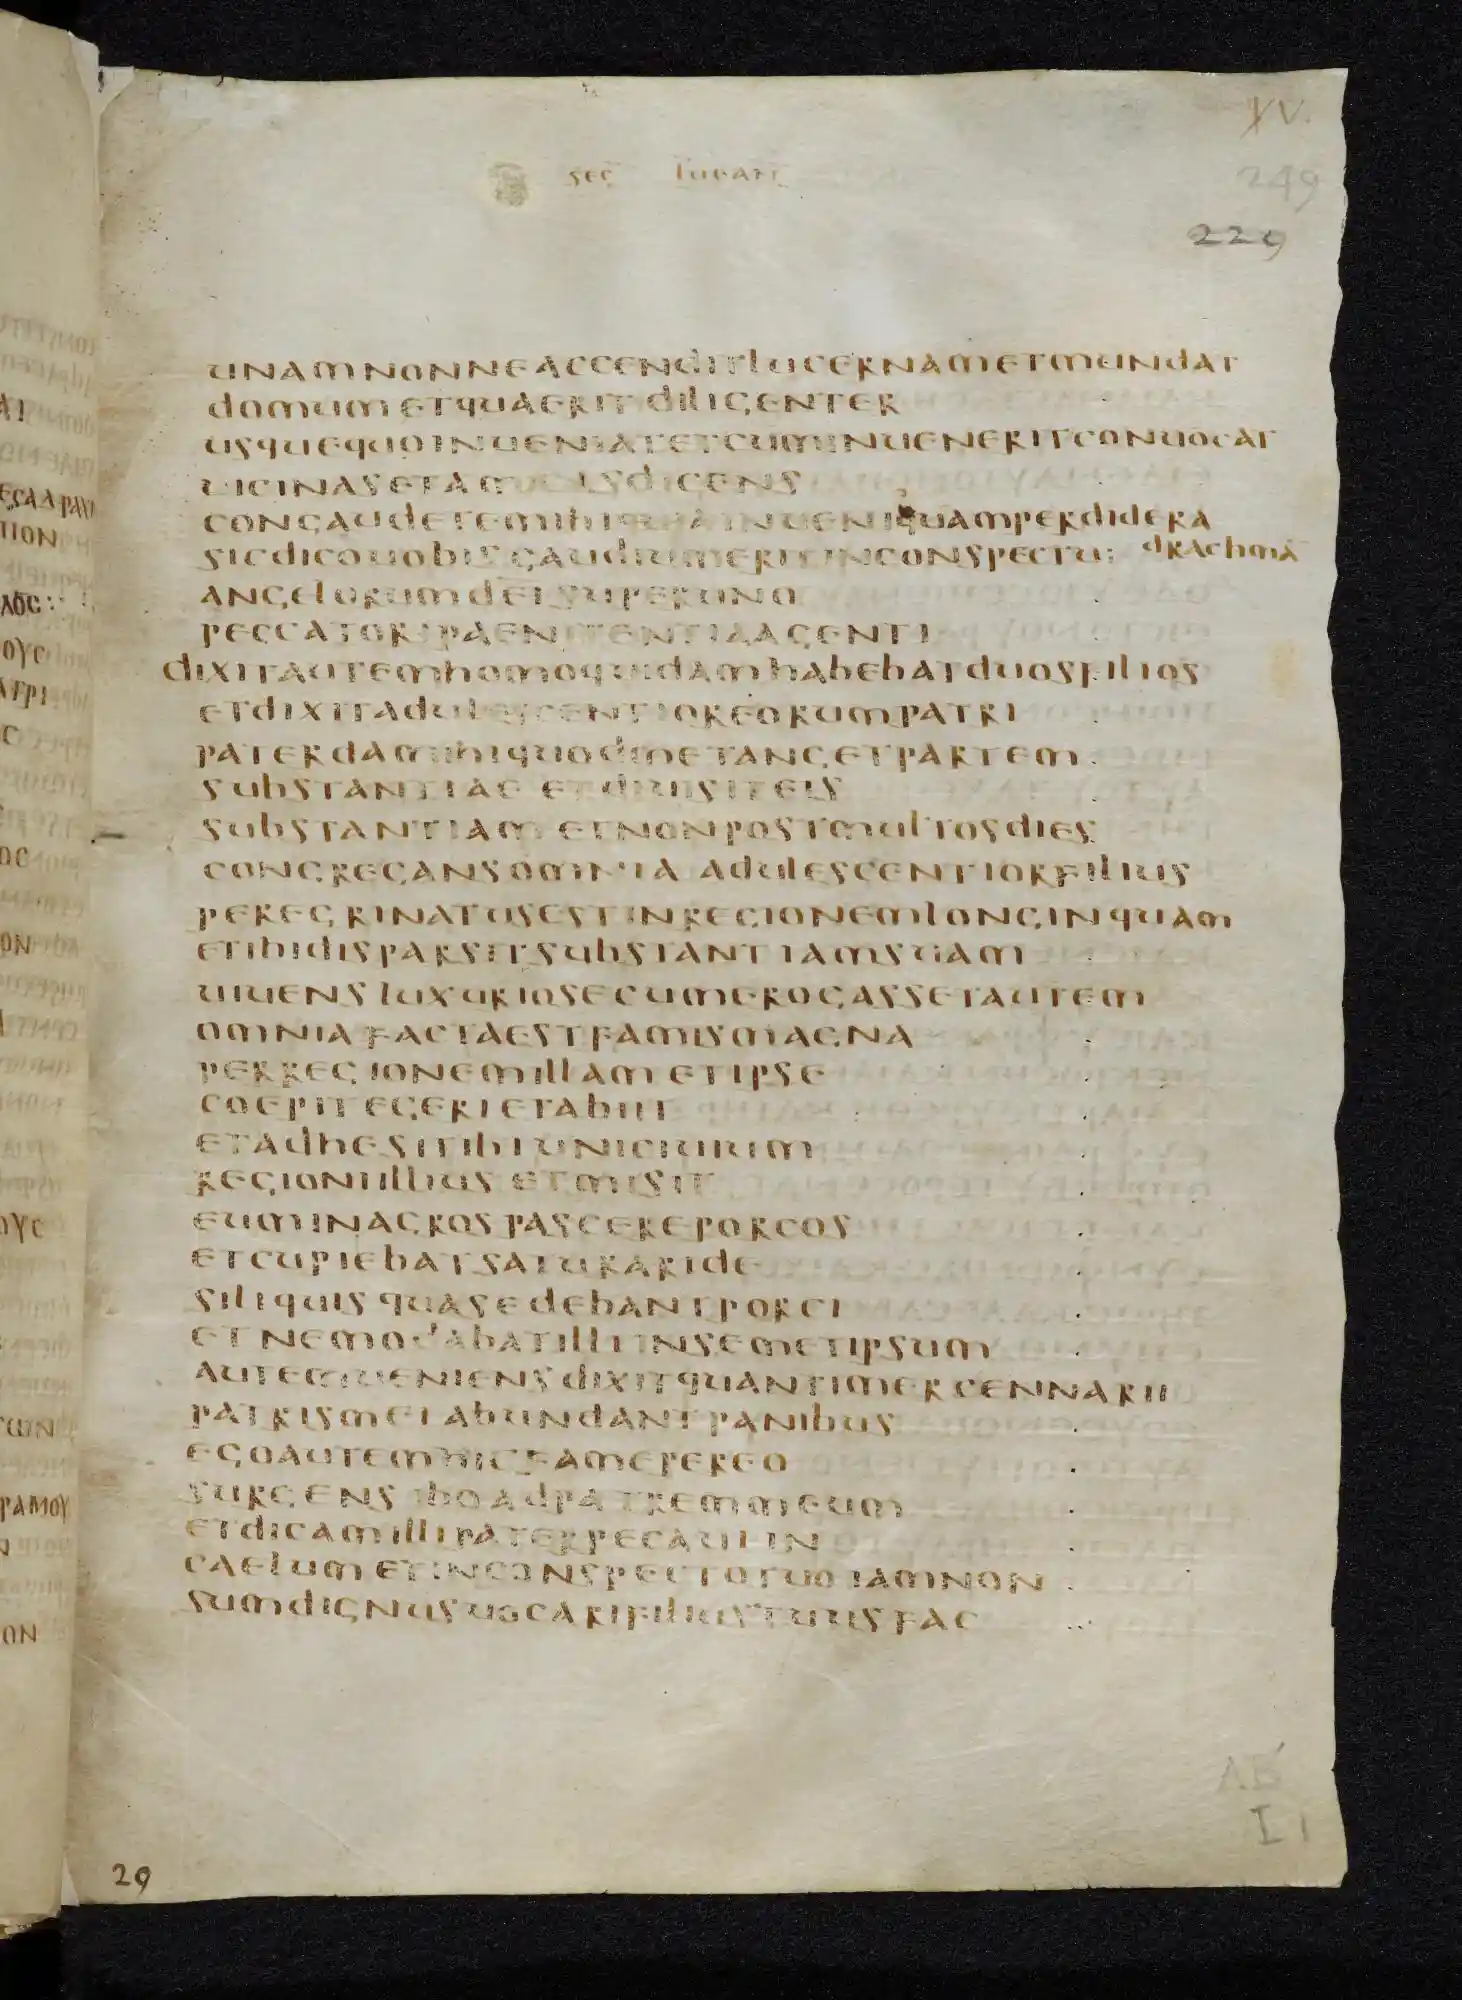 XV.
249
sec lucan
229
unamnonneaccenditlucernametmundat
domumetquaeritdiligenter
usquequoinueniatetcuminueneritconuocat
uicinasetamicasdicens
congaudetemihiquiainueniquamperdidera
sicdicouobisgaudiumeritinconspectu drachmā
angelorumdeīsuperuno
peccatoripaenitentiaagenti
dixitautemhomoquidamhabebatduosfilios
etdixitadulescentioreorumpatri
paterdamihiquodmetangetpartem
substantiae etdiuisiteis
substantiam etnonpostmultosdies
congregansomnia adulescentiorfilius
peregrinatusestinregionemlonginquam
etibidisparsitsubstantiamsuam
uiuensluxuriosecumerogassetautem
omniafactaestfamismagna
perregionemillam etipse
coepitegerietabiit
etadhesitibiunciuium
regioniillius etmisit
euminagrospascereporcos
etcupiebatsaturaride
siliquisquasedebantporci
etnemodabatilliinsemetipsum
autemueniensdixitquantimercennarii
patrismeiabundantpanibus
egoautemhicfamepereo
surgensiboadpatremmeum
etdicamillipaterpecauiin
caelumetinconspectotuo iamnon
sumdignusuocarifiliustuusfac
29